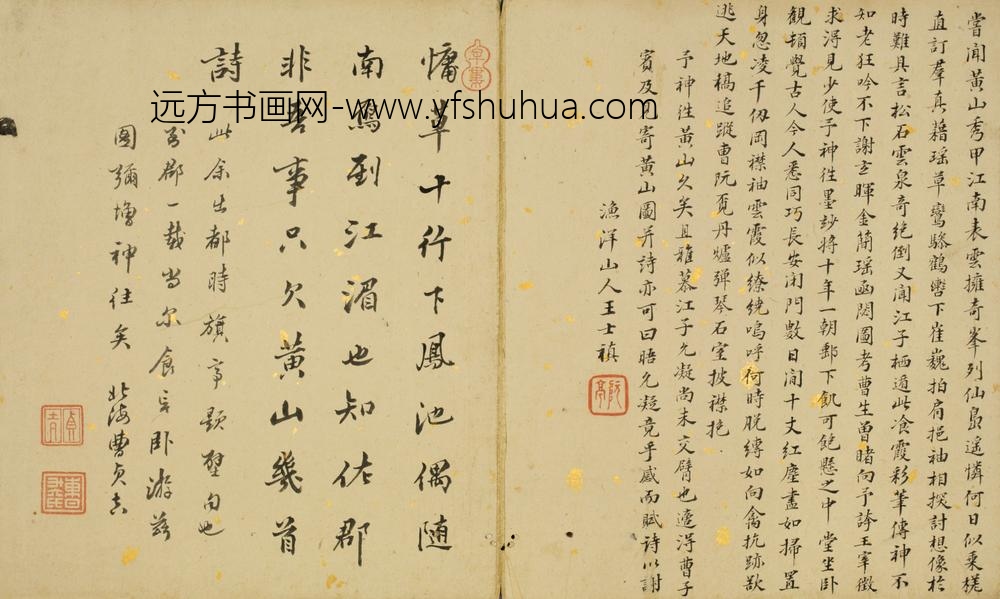 嘗聞黃山秀甲江南表雲擁奇峯列仙島遙憐何日似乘槎
直訂羣真藉瑶草鸞驂鶴轡下崔巍拍肩挹袖相探討想像於
時難具言松石雲泉奇絶倒又聞江子栖遁此飡霞彩筆傳神不
知老狂吟不下謝玄暉金蘭瑶函閟圖考曹生曾睹向予誇王宰徵
求浔見少使予神徃墨玅將十年一朝郵下飢可飽懸之中堂坐卧
觀頓覺古人今人悉同巧長安閉門數日間十丈紅塵盡如掃置
身忽凌千仞岡襟袖雲霞似繚繞嗚呼何時脱縛如向禽抗跡欲
逃天地槁追蹤曹阮覔丹爐彈琴石室披襟抱
予神徃黃山久矣且雅慕江子允凝尚未交臂也適浔曹子
賓及書寄黃山圖并詩亦可曰晤允凝竟乎感而賦詩以謝
漁洋山人王士禛
阮亭
慵草十行下鳳池偶随
南鴈到江湄也知佐郡
非吾事只欠黃山幾首
詩
此余出都時旗亭題壁句也
到郡一載尚尔食言卧游兹
圖彌增神往矣
北海曹貞吉
貞吉
远方书画网-www.yfshuhua.com